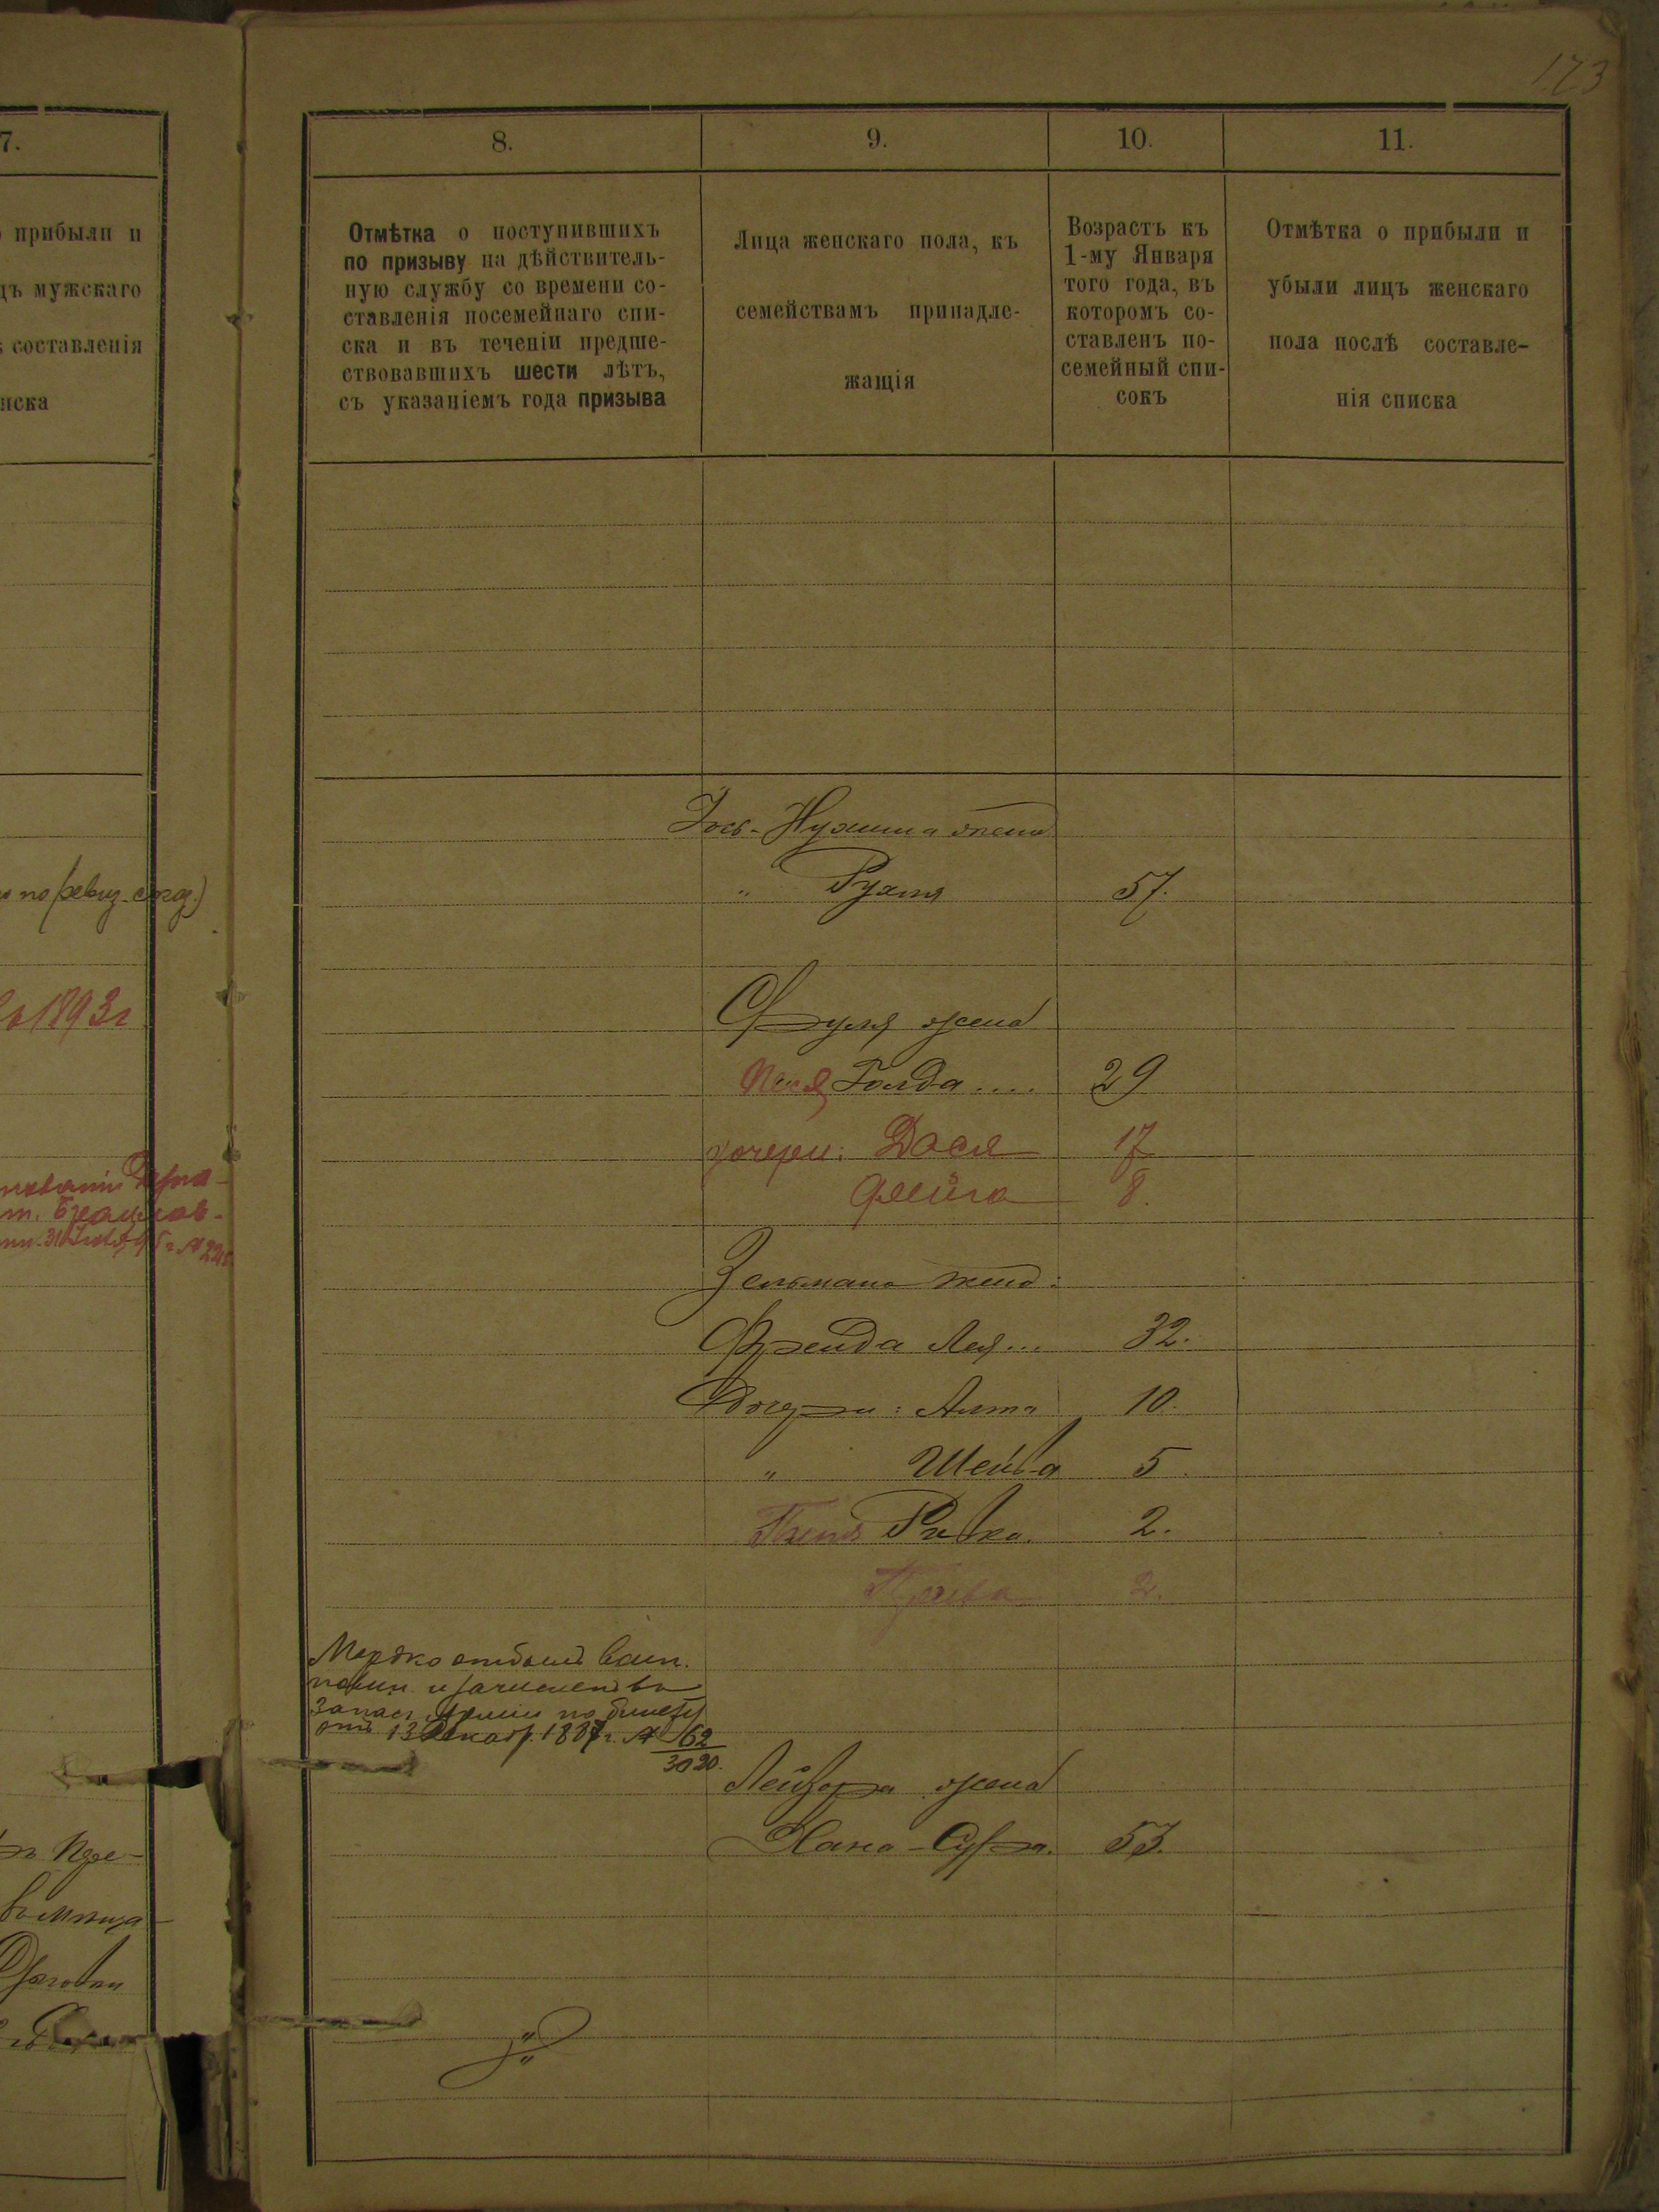 173
7.
прибыли и
мужскаго
составленія
8.
9.
10.
11.
Отмѣтка о поступившихъ
по призыву на дѣйствитель-
ную службу со времени со-
ставленія посемейнаго спи-
ска и въ теченіи предше-
ствовавшихъ шести лѣтъ,
съ указаніемъ года призыва
Лица женскаго пола, къ
семействамъ принадле-
жащія
Возрастъ къ
1-му Января
того года, въ
которомъ со-
ставленъ по-
семейный спи-
сокъ
Отмѣтка о прибыли и
убыли лицъ женскаго
пола послѣ составле-
нія списка
1893г
Іось-Нухима жена
" Рухля 57.
Сруля жена
Голда .... 29
дочери: Дося 17
Фейга 8.
Зельмана жена:
Фрейда Лея... 32.
Дочери: Алта 10.
" Шейва 5.
Ривка. 2.
2.
Мордко отбылъ воин.
повин. и зачисленъ въ
запасъ Арміи по билету
отъ 13 Декабр. 1887г. № 62
3020.
Лейзора жена
Хана-Сура. 53.